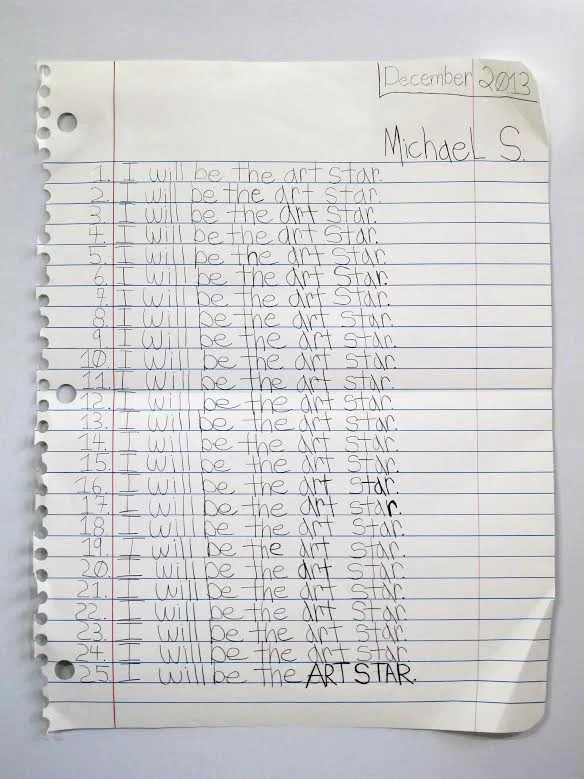 December 2013
Michael S.
1. I will be the art star.
2. I will be the art star.
3. I will be the art star.
4. I will be the art star.
5. I will be the art star.
6. I will be the art star.
7. I will be the art star.
8. I will be the art star.
9. I will be the art star.
10. I will be the art star.
11. I will be the art star.
12. I will be the art star.
13. I will be the art star.
14. I will be the art star.
15. I will be the art star.
16. I will be the art star.
17. I will be the art star.
18. I will be the art star.
19. I will be the art star.
20. I will be the art star.
21. I will be the art star.
22. I will be the art star.
23. I will be the art star.
24. I will be the art star.
25. I will be the ART STAR.